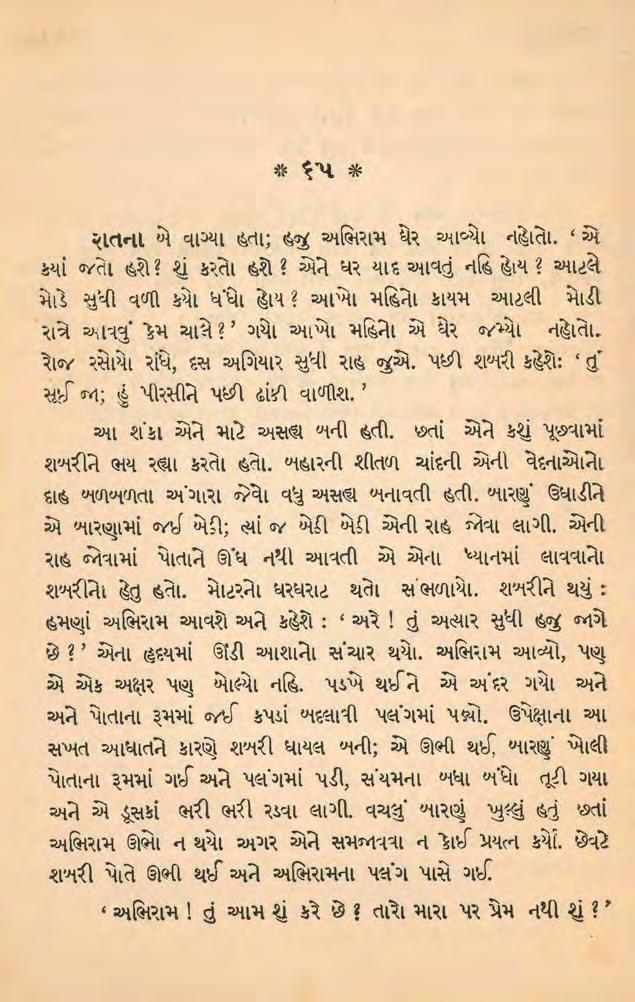 * ૬૫ *
રાતના બે વાગ્યા હતા; હજુ અભિરામ ઘેર આવ્યો નહોતો. ‘ એ
કયાં જતો હશે? શું કરતો હશે ? એને ઘર યાદ આવતું નહિ હોય ? આટલે
મોડે સુધી વળી કયો ધંધો હોય ? આખો મહિનો કાયમ આટલી મોડી
રાત્રે આવવું કેમ ચાલે ? ’ ગયો આખો મહિનો એ ઘેર જમ્યો નહોતો.
રોજ રસોયો રાંધે, દસ અગિયાર સુધી રાહ જુએ. પછી શબરી કહેશેઃ ‘ તું
સૂઈ જા; હું પીરસીને પછી ઢાંકી વાળીશ. ’
આ શંકા એને માટે અસહ્ય બની હતી. છતાં એને કશું પૂછવામાં
શબરીને ભય રહ્યા કરતો હતો. બહારની શીતળ ચાંદની એની વેદનાઓનો
દાહ બળબળતા અંગારા જેવો વધુ અસહ્ય બનાવતી હતી. બારણું ઉઘાડીને
એ બારણામાં જઈ બેઠી; ત્યાં જ બેઠી બેઠી એની રાહ જોવા લાગી. એની
રાહ જોવામાં પોતાને ઊંઘ નથી આવતી એ એના ધ્યાનમાં લાવવાનો
શબરીનો હેતુ હતો. મોટરનો ઘરઘરાટ થતો સંભળાયો. શબરીને થયું :
હમણાં અભિરામ આવશે અને કહેશે : ‘ અરે ! તું અત્યાર સુધી હજુ જાગે
છે ? ’ એના હૃદયમાં ઊંડી આશાનો સંચાર થયો. અભિરામ આવ્યો, પણ
એ એક અક્ષર પણ બોલ્યો નહિ. પડખે થઈને એ અંદર ગયો અને
અને પોતાના રૂમમાં જઈ કપડાં બદલાવી પલંગમાં પડ્યો. ઉપેક્ષાના આ
સખત આઘાતને કારણે શબરી ઘાયલ બની; એ ઊભી થઈ, બારણું ખોલી
પોતાના રૂમમાં ગઈ અને પલંગમાં પડી, સંયમના બધા બંધો તૂટી ગયા
અને એ ડૂસકાં ભરી ભરી રડવા લાગી. વચલું બારણું ખુલ્લું હતું છતાં
અભિરામ ઊભો ન થયો અગર એને સમજાવવા ન કોઈ પ્રયત્ન કર્યો. છેવટે
શબરી પોતે ઊભી થઈ અને અભિરામના પલંગ પાસે ગઈ.
‘ અભિરામ ! તું આમ શું કરે છે ? તારો મારા પર પ્રેમ નથી શું ? ’